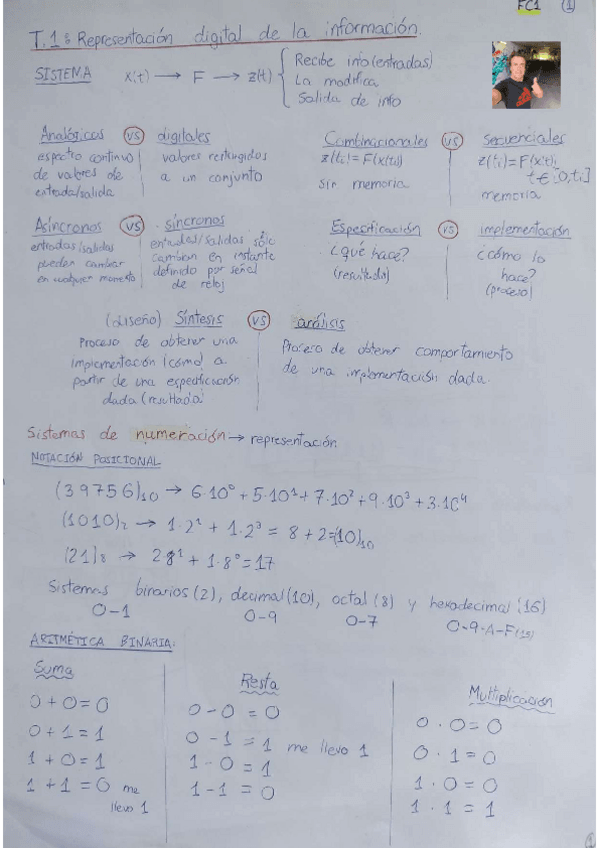 FC1 (1)
T.1: Representación digital de la información.
SISTEMA x(t) → F → z(t) { Recibe info (entradas)
La modifica
Salida de info
Analógicos vs digitales
espectro continuo
de valores de
entrada/salida
valores restringidos
a un conjunto
Combinacionales vs secuenciales
z(ti)=F(x(ti))
Sin memoria
z(ti)=F(x(t),
t∈[0,ti]
memoria
Asíncronos vs síncronos
entradas/salidas
pueden cambiar
en cualquier momento
entradas/salidas sólo
cambian en instante
definido por señal
de reloj
Especificación vs implementación
¿Qué hace?
(resultado)
¿cómo lo
hace?
(proceso)
(diseño) Síntesis vs análisis
Proceso de obtener una
implementación (cómo) a
partir de una especificación
dada (resultado)
Proceso de obtener comportamiento
de una implementación dada.
Sistemas de numeración → representación
NOTACIÓN POSICIONAL
(39756)10 → 6·10⁰ + 5·10¹ + 7·10² + 9·10³ + 3·10⁴
(1010)2 → 1·2¹ + 1·2³ = 8 + 2 = (10)10
(21)8 → 2 8¹ + 1·8⁰ = 17
Sistemas binarios (2), decimal (10), octal (8) y hexadecimal (16)
0-1 0-9 0-7 0-9-A-F(15)
ARITMÉTICA BINARIA:
Suma
0 + 0 = 0
0 + 1 = 1
1 + 0 = 1
1 + 1 = 0 me
llevo 1
Resta
0 - 0 = 0
0 - 1 = 1 me llevo 1
1 - 0 = 1
1 - 1 = 0
Multiplicación
0 · 0 = 0
0 · 1 = 0
1 · 0 = 0
1 · 1 = 1
1